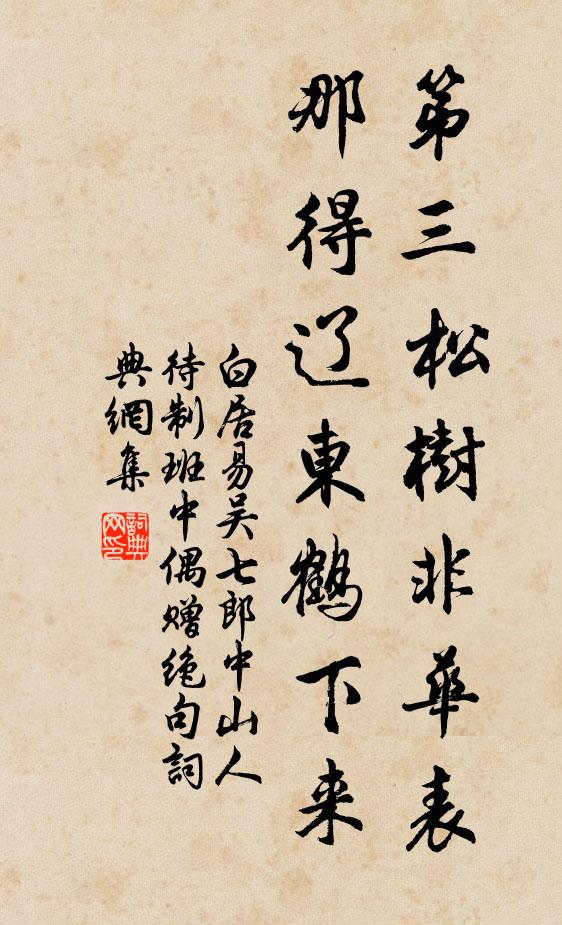 第三松樹非華表
那得辽東鶴下来
白居易吴七郎中山人
待制班中偶赠绝句詞
典網集
詞典
网印